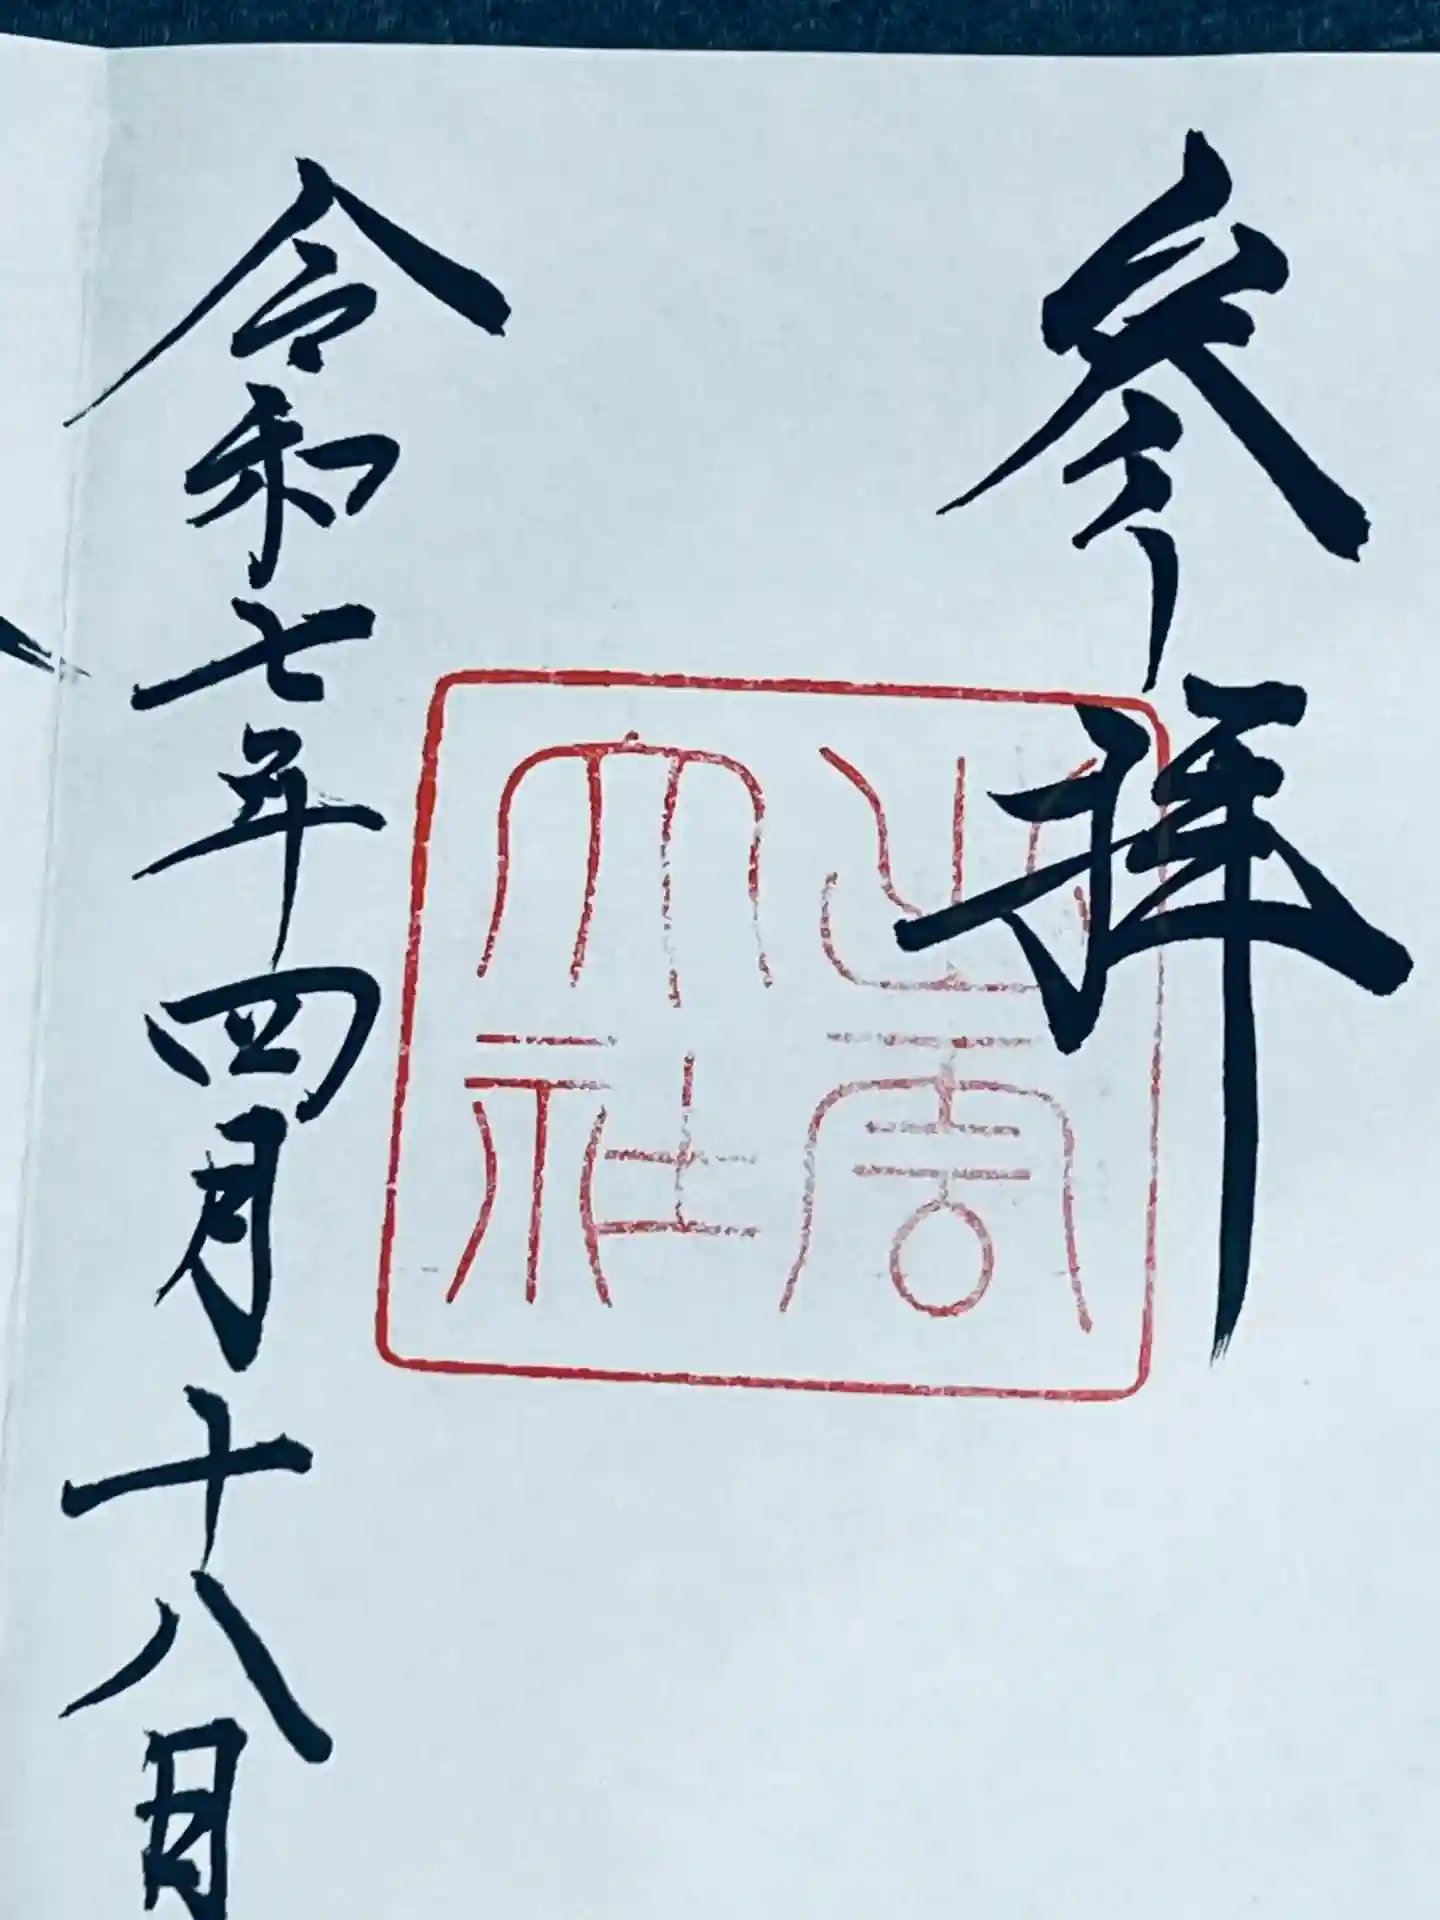 参拝
出雲
大社
令和七年四月十八日